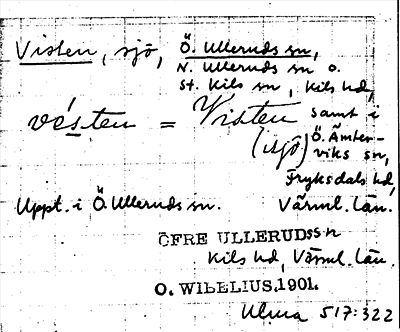 Visten, sjö, Ö. Ulleruds sn,
N. Ulleruds sn o.
St. Kils sn, Kils hd,
vésten = Visten samt i
(sjö) Ö. Ämter-
viks sn,
Fryksdals hd,
Uppt. i Ö. Ulleruds sn. Värml. län.
ÖFRE ULLERUDS sn
Kils hd, Värml. län.
O. WIBELIUS.1901.
Ulma 517:322